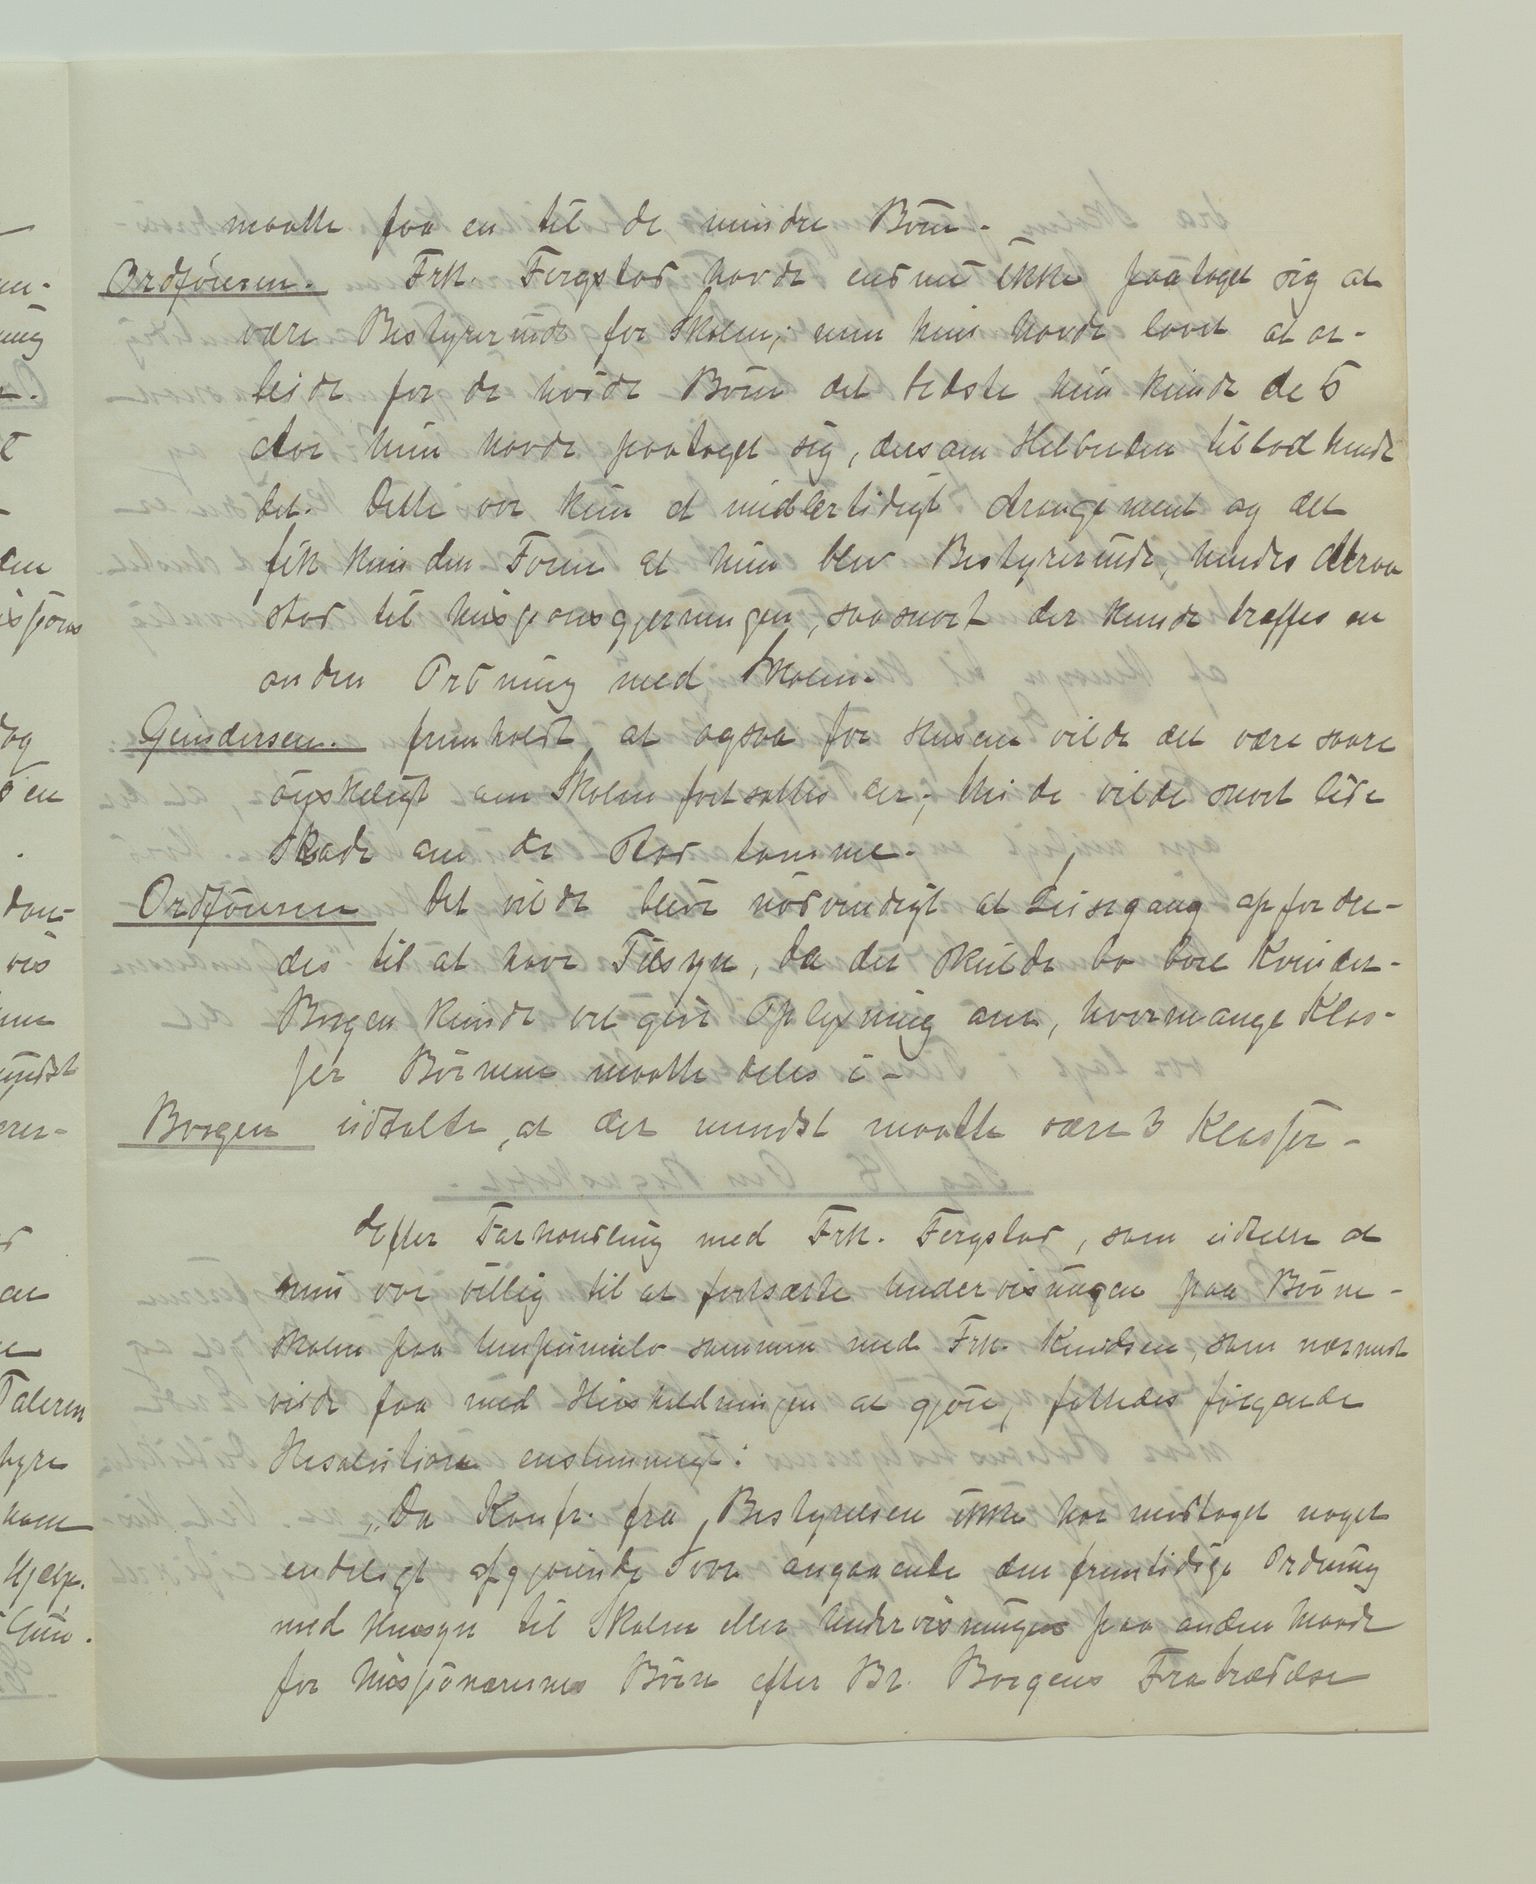 maatte faa en til de mindre Börn.
Ordföreren. Frk. Fergstad havde endnu ikke paataget sig at
være Bestyrerinde for Skolen; men hun havde lovet at ar-
beide for de hvide Börn det bedste hun kunde de 5
Aar hun havde paataget sig, dersom Helbreden tillod hende
det. Dette var kun et midlertidigt Arrangement og det
fik kun den Form at hun blev Bestyrerinde, hendes Attraa
stod til Missionsgjerningen, saasnart der kunde træffes en
anden Ordning med Skolen.
Gundersen. fremholdt, at ogsaa for Husene vilde det være saare
önskeligt om Skolen fortsattes der; thi de vilde snart lide
Skade om de stod tomme.
Ordföreren Det vilde blive nödvendigt at Leisegang opfordre-
des til at have Tilsyn, da der skulde bo bare Kvinder.
Borgen kunde vel give Oplysning om, hvormange Klas-
ser Börnene maatte deles i.
Borgen udtalte, at der mindst maatte være 3 Klasser.
Efter Forhandling med Frk. Fergstad, som udtalte at
hun var villig til at fortsætte Undervisningen paa Börne-
skolen paa sammen med Frk. Knudsen, som nærmest
vilde faa med Husholdningen at gjöre, fattedes fölgende
Resolution enstemmigt:
„Da Konfr. fra Bestyrelsen ikke har modtaget noget
endeligt afgjörende Svar angaaende den fremtidige Ordning
med Hensyn til Skolen eller Undervisningen paa anden Maade
for Missionærernes Börn efter Br. Borgens Fratrædelse